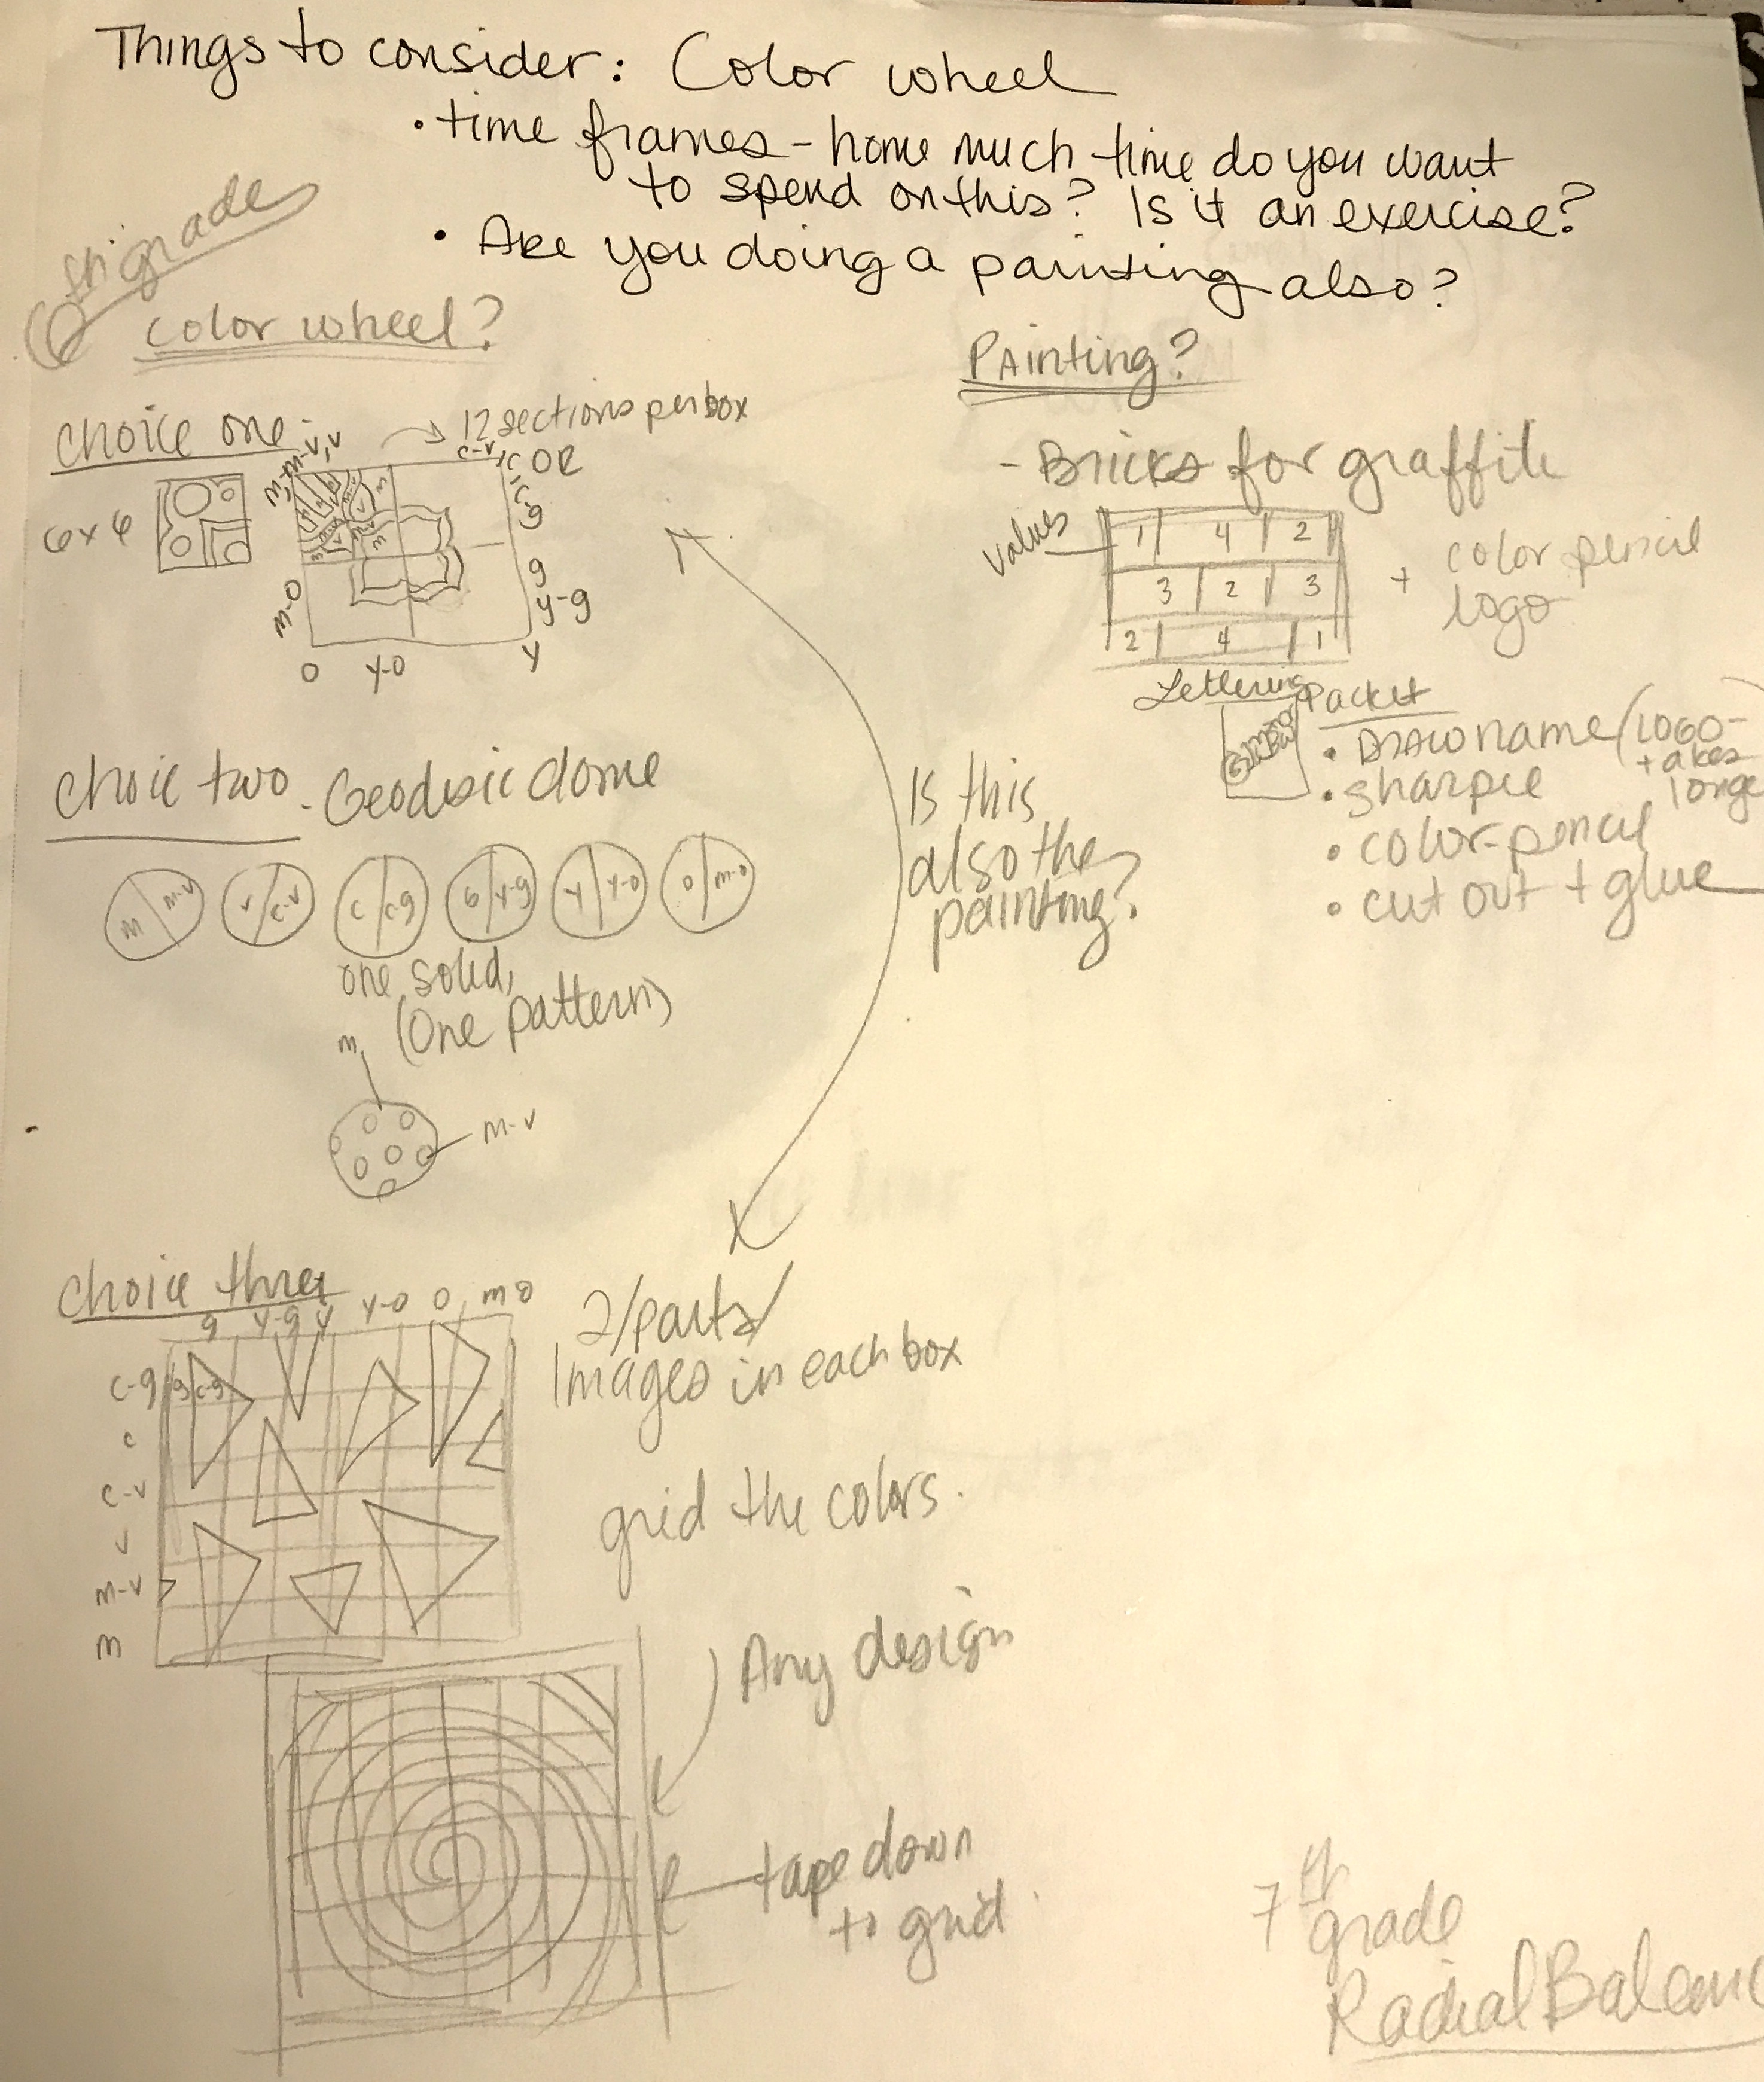 Things to consider: Color wheel
• time frames - home much time do you want
to spend on this? Is it an exercise?
• Are you doing a painting also?
6th grade
color wheel?
choice one.
→ 12 sections per box
6x6
m-v, v
c-v, c OR
c-g
g
y-g
y
y-o
o
m-o
choic two - Geodesic dome
m m-v
v c-v
c c-g
G y-g
y y-o
o m-o
one solid,
(One pattern)
m
m-v
choice three
g y-g y y-o o m o
c-g g c-g
c
c-v
v
m-v
m
2/parts/
Images in each box
grid the colors.
Any design
tape down
to grid
Is this
also the
painting?
PAinting?
- Bricks for graffiti
values
1 4 2
3 2 3
2 4 1
+ color pencil
logo
Lettering Packet
• DrAw name (LOGO-
takes
longe
• sharpie
• color-pencil
• cut out + glue
7th
grade
Radial Balanc